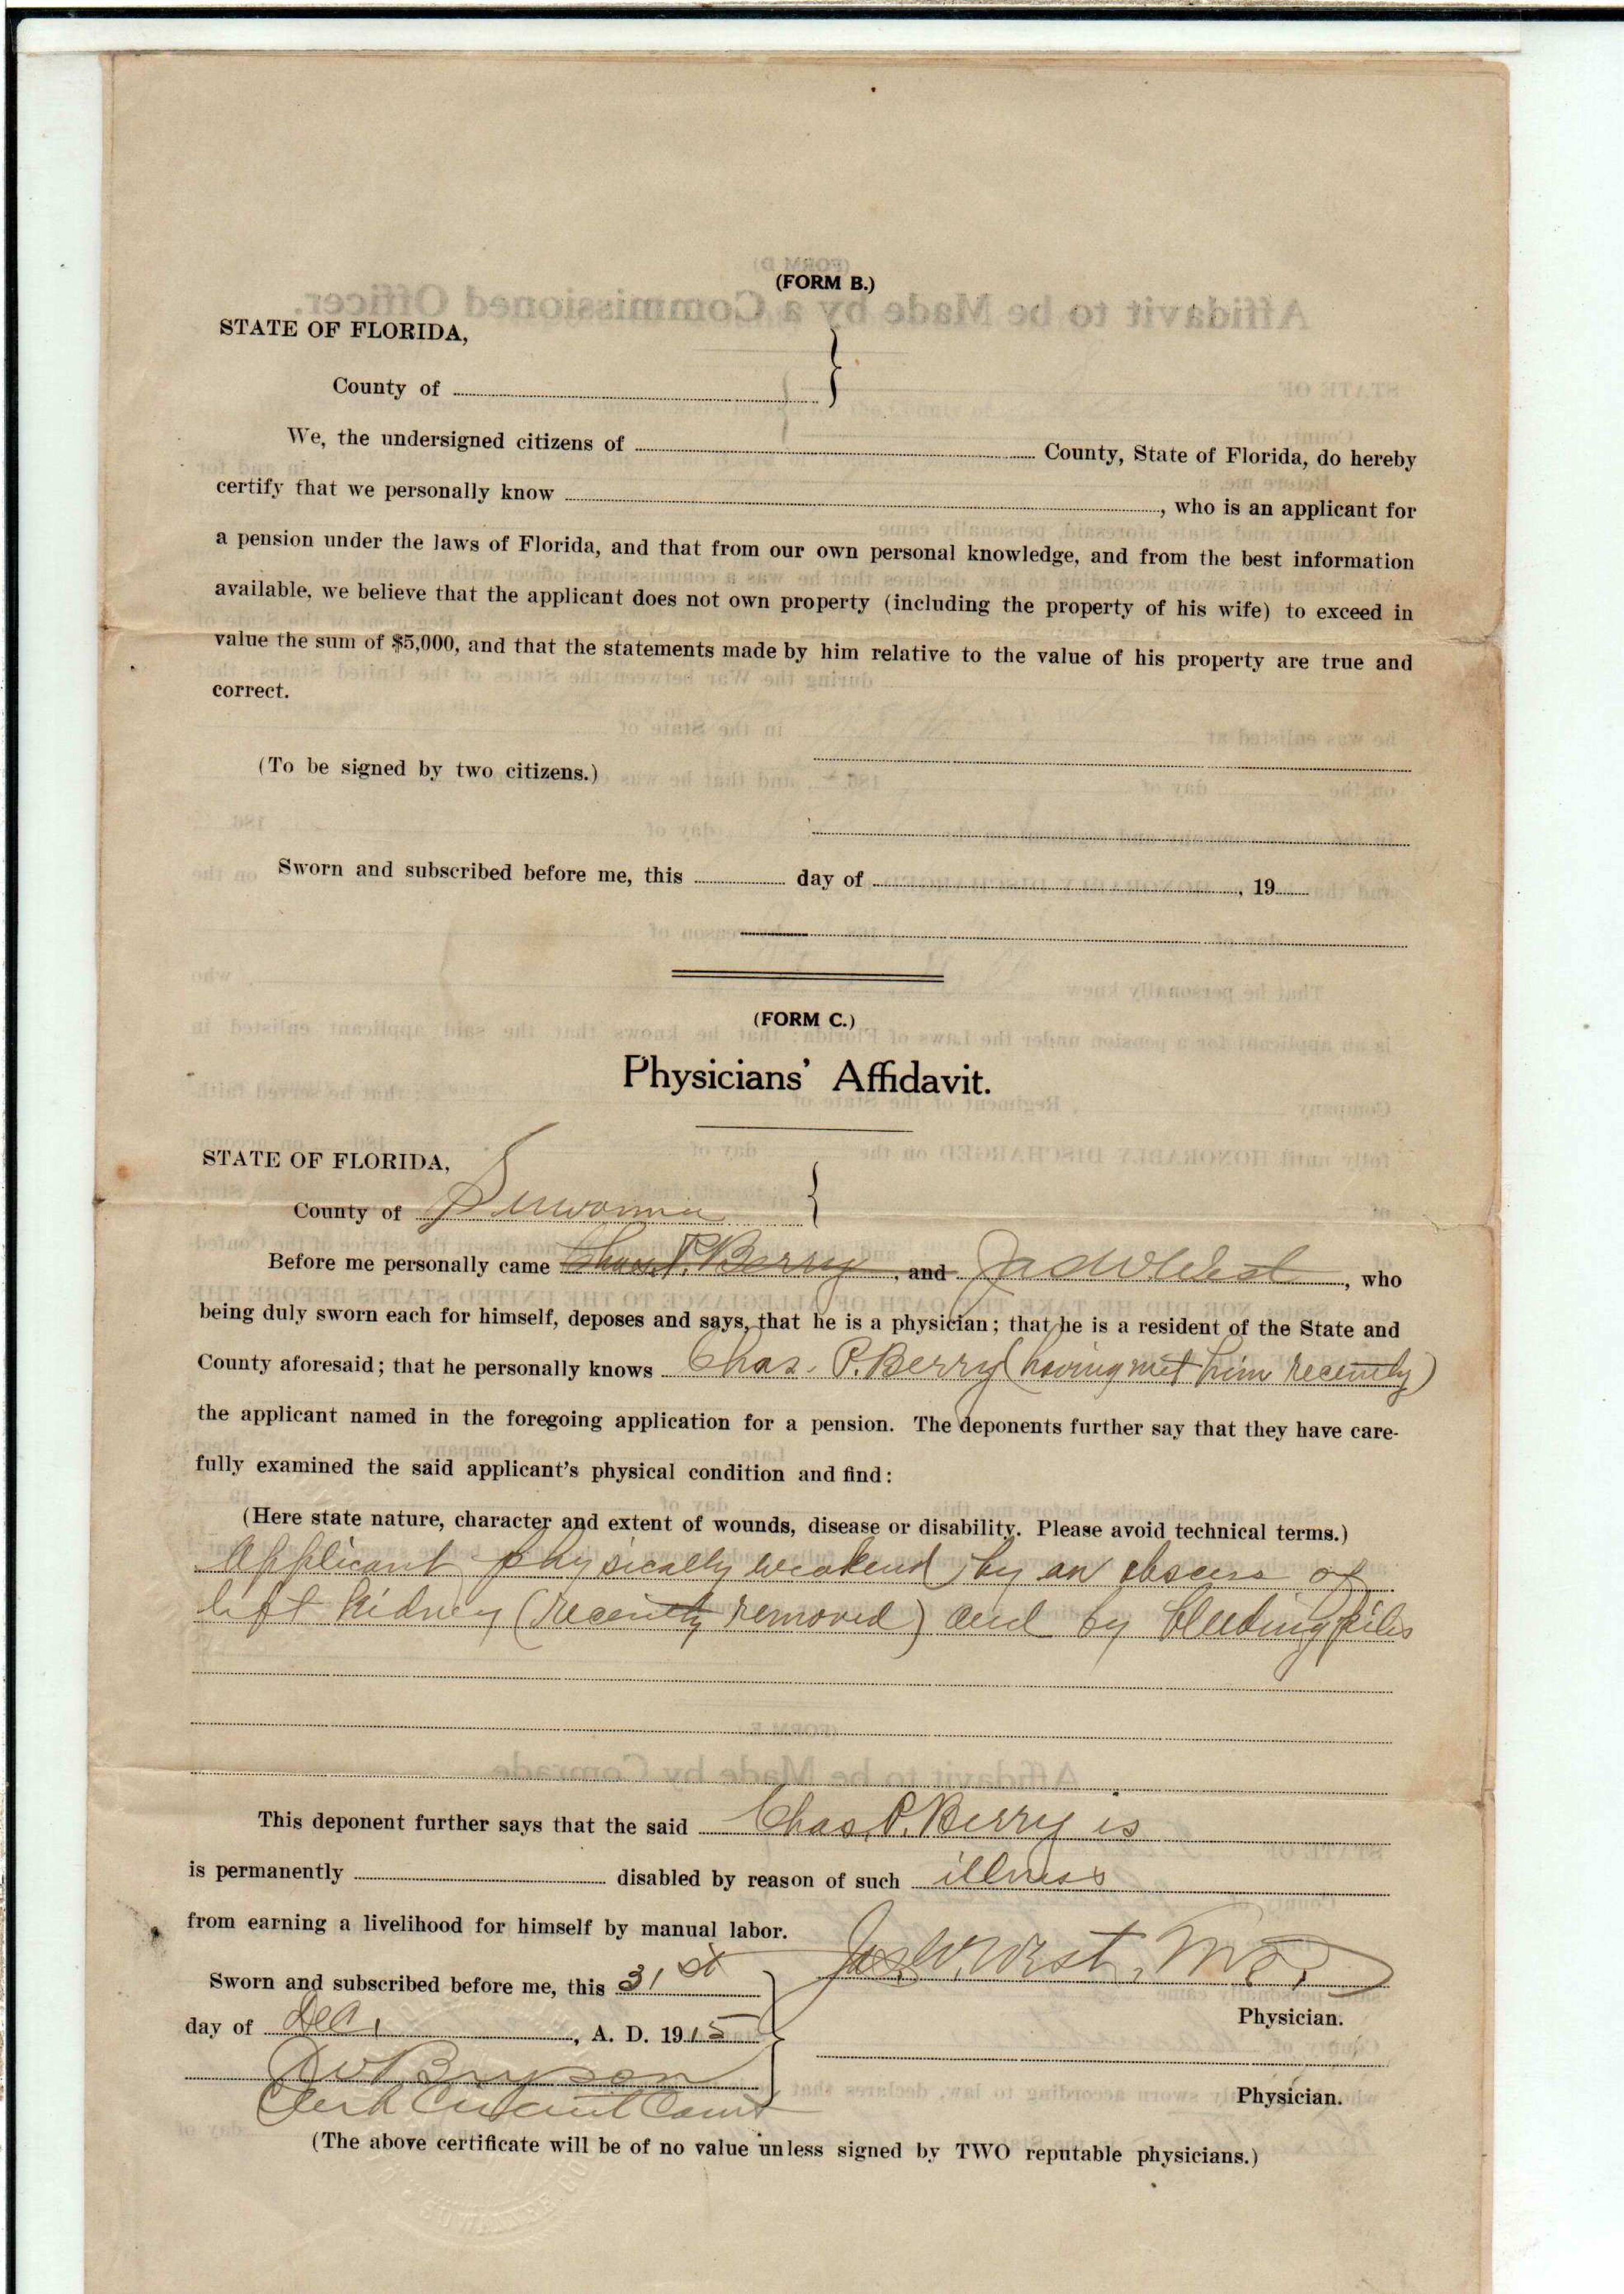 (FORM B.)
STATE OF FLORIDA,
County of
We, the undersigned citizens of County, State of Florida, do hereby
certify that we personally know , who is an applicant for
a pension under the laws of Florida, and that from our own personal knowledge, and from the best information
available, we believe that the applicant does not own property (including the property of his wife) to exceed in
value the sum of $5,000, and that the statements made by him relative to the value of his property are true and
correct.
(To be signed by two citizens.)
Sworn and subscribed before me, this day of , 19
(FORM C.)
Physicians' Affidavit.
STATE OF FLORIDA,
County of Suwannee
Before me personally came Chas. P. Berry, and Jas W West, who
being duly sworn each for himself, deposes and says, that he is a physician; that he is a resident of the State and
County aforesaid; that he personally knows Chas. P. Berry (having met him recently)
the applicant named in the foregoing application for a pension. The deponents further say that they have care-
fully examined the said applicant's physical condition and find:
(Here state nature, character and extent of wounds, disease or disability. Please avoid technical terms.)
Applicant physically weakend by an abscess of
left kidney (recently removed) and by bleeding piles
This deponent further says that the said Chas. P. Berry is
is permanently disabled by reason of such illness
from earning a livelihood for himself by manual labor.
Sworn and subscribed before me, this 31st
Jas. W. West, M.D.
Physician.
day of Dec, , A. D. 1915
Bryson
Physician.
Clerk Circuit Court
(The above certificate will be of no value unless signed by TWO reputable physicians.)